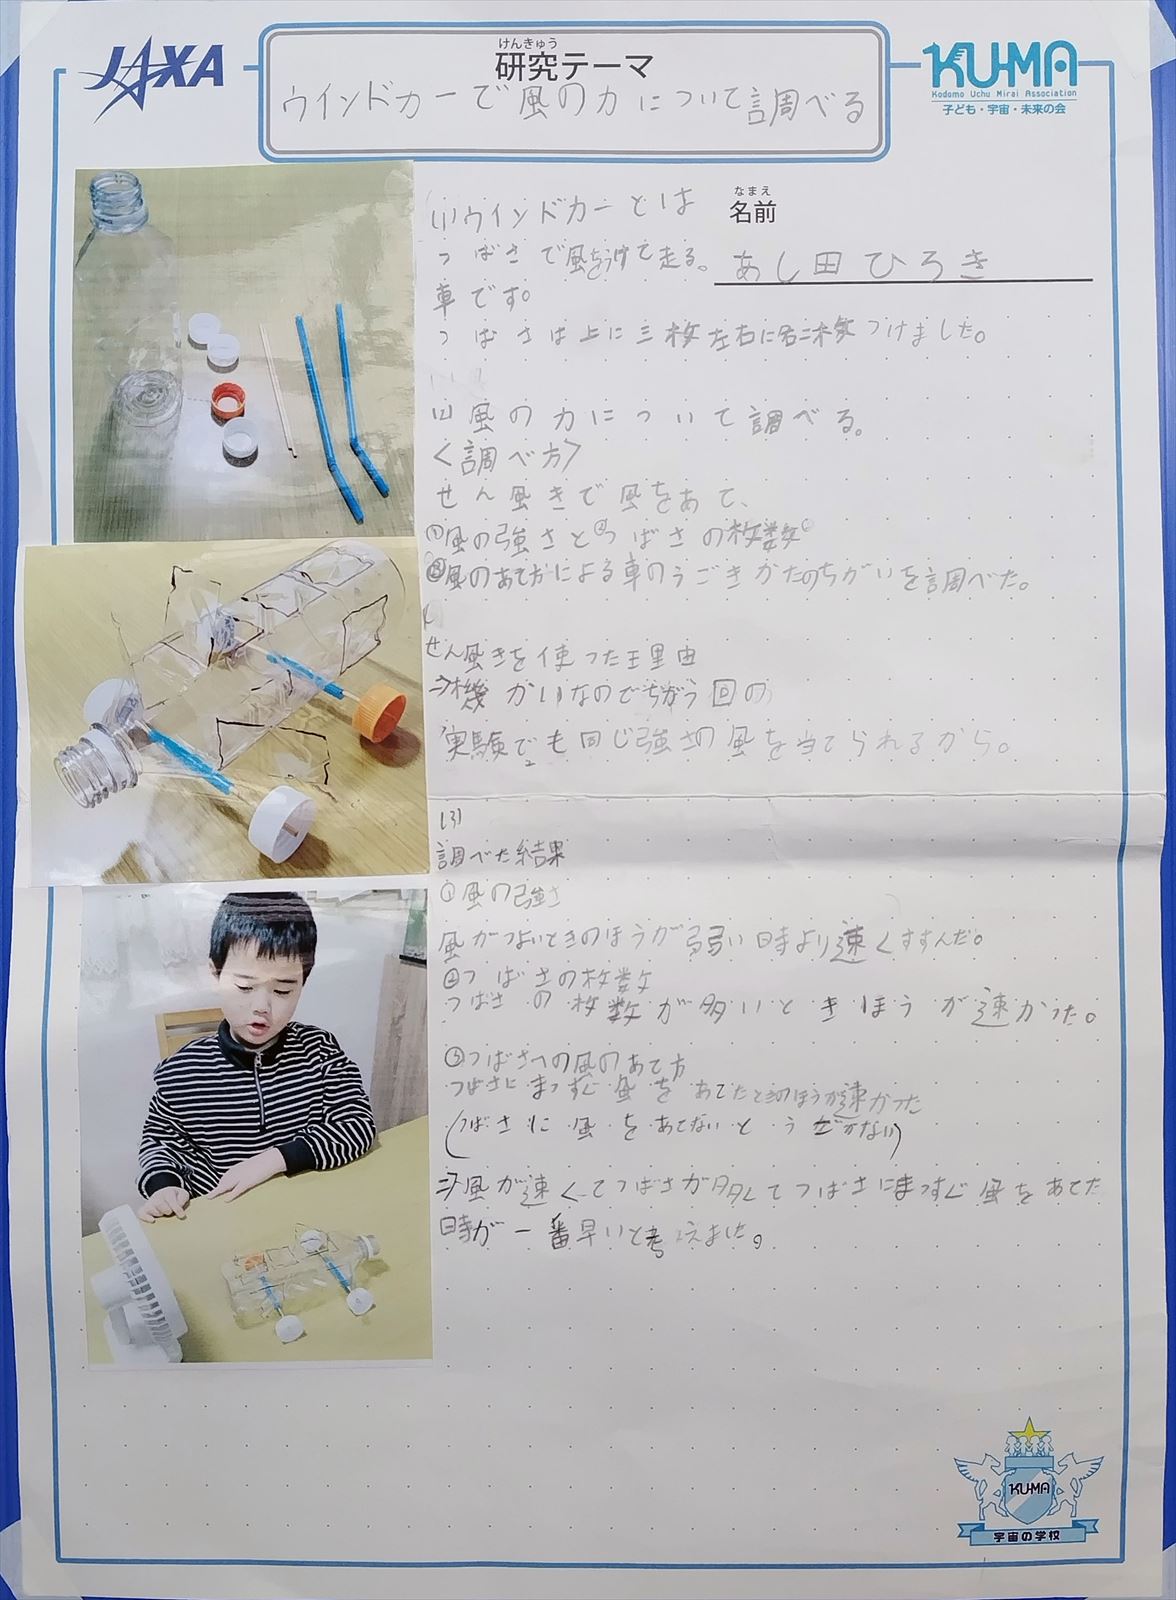 JAXA
けんきゅう
研究テーマ
KU-MA
Kodomo Uchu Mirai Association
子ども・宇宙・未来の会
ウインドカーで風の力について調べる
なまえ
名前
あし田ひろき
(1)ウインドカーとは
つばさで風をうけて走る。
車です。
つばさは上に三枚左右に各二枚つけました。
(2)風の力について調べる。
<調べ方>
せん風きで風をあて、
①風の強さと②つばさの枚数
③風のあてかたによる車のうごきかたのちがいを調べた。
せん風きを使った理由
→機かいなのでちがう回の
実験でも同じ強さの風を当てられるから。
(3)
調べた結果
①風の強さ
風がつよいときのほうが弱い時より速くすすんだ。
②つばさの枚数
つばさの枚数が多いときほうが速かった。
③つばさへの風のあて方
つばさにまっすぐ風をあてたときのほうが速かった
(つばさに風をあてないとうごかない)
⇒風が速くてつばさが多くてつばさにまっすぐ風をあてた
時が一番早いと考えました。
KU-MA
宇宙の学校